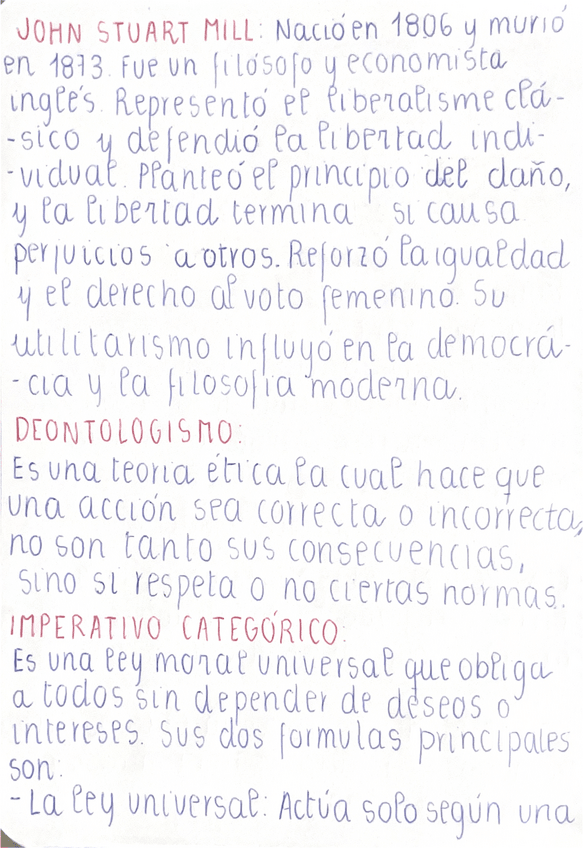 JOHN STUART MILL: Nació en 1806 y murió
en 1873. Fue un filósofo y economista
inglés. Representó el liberalisme clá-
-sico y defendió la libertad indi-
-vidual. Planteó el principio del daño,
y la libertad termina si causa
perjuicios a otros. Reforzó la igualdad
y el derecho al voto femenino. Su
utilitarismo influyó en la democrá-
-cia y la filosofía moderna.
DEONTOLOGISMO:
Es una teoria ética la cual hace que
una acción sea correcta o incorrecta,
no son tanto sus consecuencias,
sino si respeta o no ciertas normas.
IMPERATIVO CATEGÓRICO:
Es una ley moral universal que obliga
a todos sin depender de deseos o
intereses. Sus dos formulas principales
son:
- La ley universal: Actúa solo según una